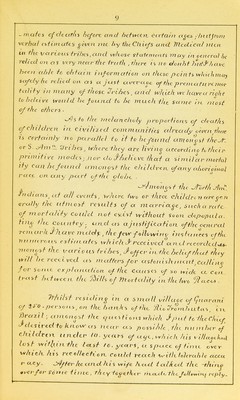 9
mates of deaths before and between certain ages; but from
verbal estimates given me by the Chiefs and Medical men
in the various tribes, and whose statements may in general be
relied on as very near the truth, there is no doubt but I have
been able to obtain information on these points which may
safely be relied on as a just average of the premature mor
tality in many of those Tribes, and which we have a right
to believe would be found to be much the same in most
of the others.
As to the melancholy proportions of deaths
of children in civilized communities already given, there
is certainly no parallel to it to be found amongst the N.
or S. Amn. Tribes, where they are living according to their
primitive modes; nor do I believe that a similar mortal
ity can be found amongst the children of any aboriginal
race on any part of the globe.
Amongst the North Amn.
Indians, at all events, where two or three children are gen
erally the utmost results of a marriage, such a rate
of mortality could not exist without soon depopula
ting the country; and as a justification of the general
remark I have made, the few following instances of the
numerous estimates which I received and recorded
amongst the various tribes, I offer in the belief that they
will be received as matters for astonishment, calling
for some explanation of the causes of so wide a con
trast between the Bills of Mortality in the two Races.
Whilst residing in a small village of Guarani
of 250 persons, on the banks of the Rio Trombutas, in
Brazil; amongst the questions which I put to the Chief,
I desired to know as near as possible, the number of
children under 10 years of age, which his village had
lost within the last 10 years, a space of time over
which his recollection could reach with tolerable accu
racy. After he and his wife had talked the thing
over for some time, they together made the following reply,